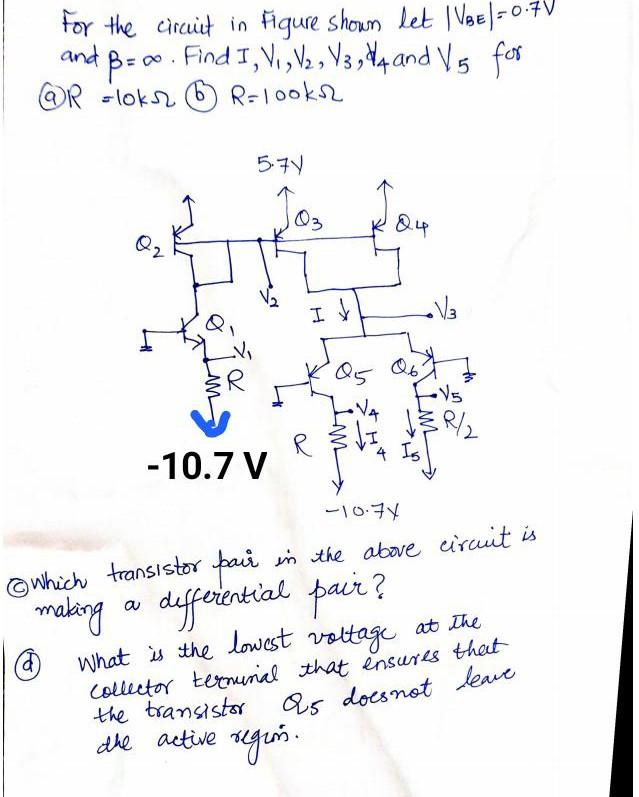 For the circuit in Figure shown let |VBE|=0.7V
and β=∞. Find I, V1, V2, V3, V4 and V5 for
ⓐR =10kΩ ⓑ R=100kΩ
5.7V
Q2
Q3
Q4
V2
I ↓
V3
Q1
V1
R
Q5
Q6
V4
V5
R
I4
I5
R/2
-10.7 V
-10.7V
ⓒ Which transistor pair in the above circuit is
making a differential pair?
ⓓ What is the lowest voltage at the
collector terminal that ensures that
the transistor Q5 doesnot leave
the active region.